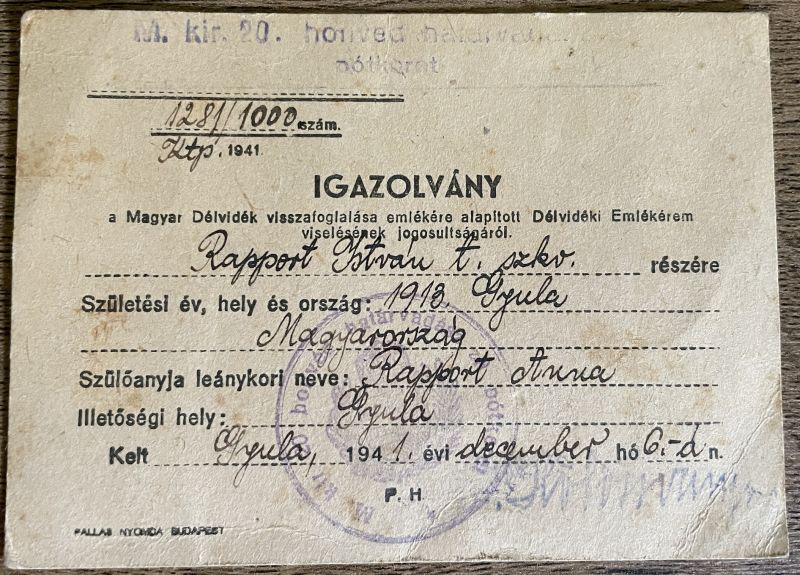 M. kir. 20. honvéd határvadász
pótkeret
1281/1000. szám.
Ktp. 1941.
IGAZOLVÁNY
a Magyar Délvidék visszafoglalása emlékére alapított Délvidéki Emlékérem
viselésének jogosultságáról.
Rapport István t. szkv. részére
Születési év, hely és ország: 1913 Gyula
Magyarország
Szülőanyja leánykori neve: Rapport Anna
Illetőségi hely: Gyula
Kelt Gyula, 1941. évi december hó 6.-á n.
P. H
PALLAS NYOMDA BUDAPEST